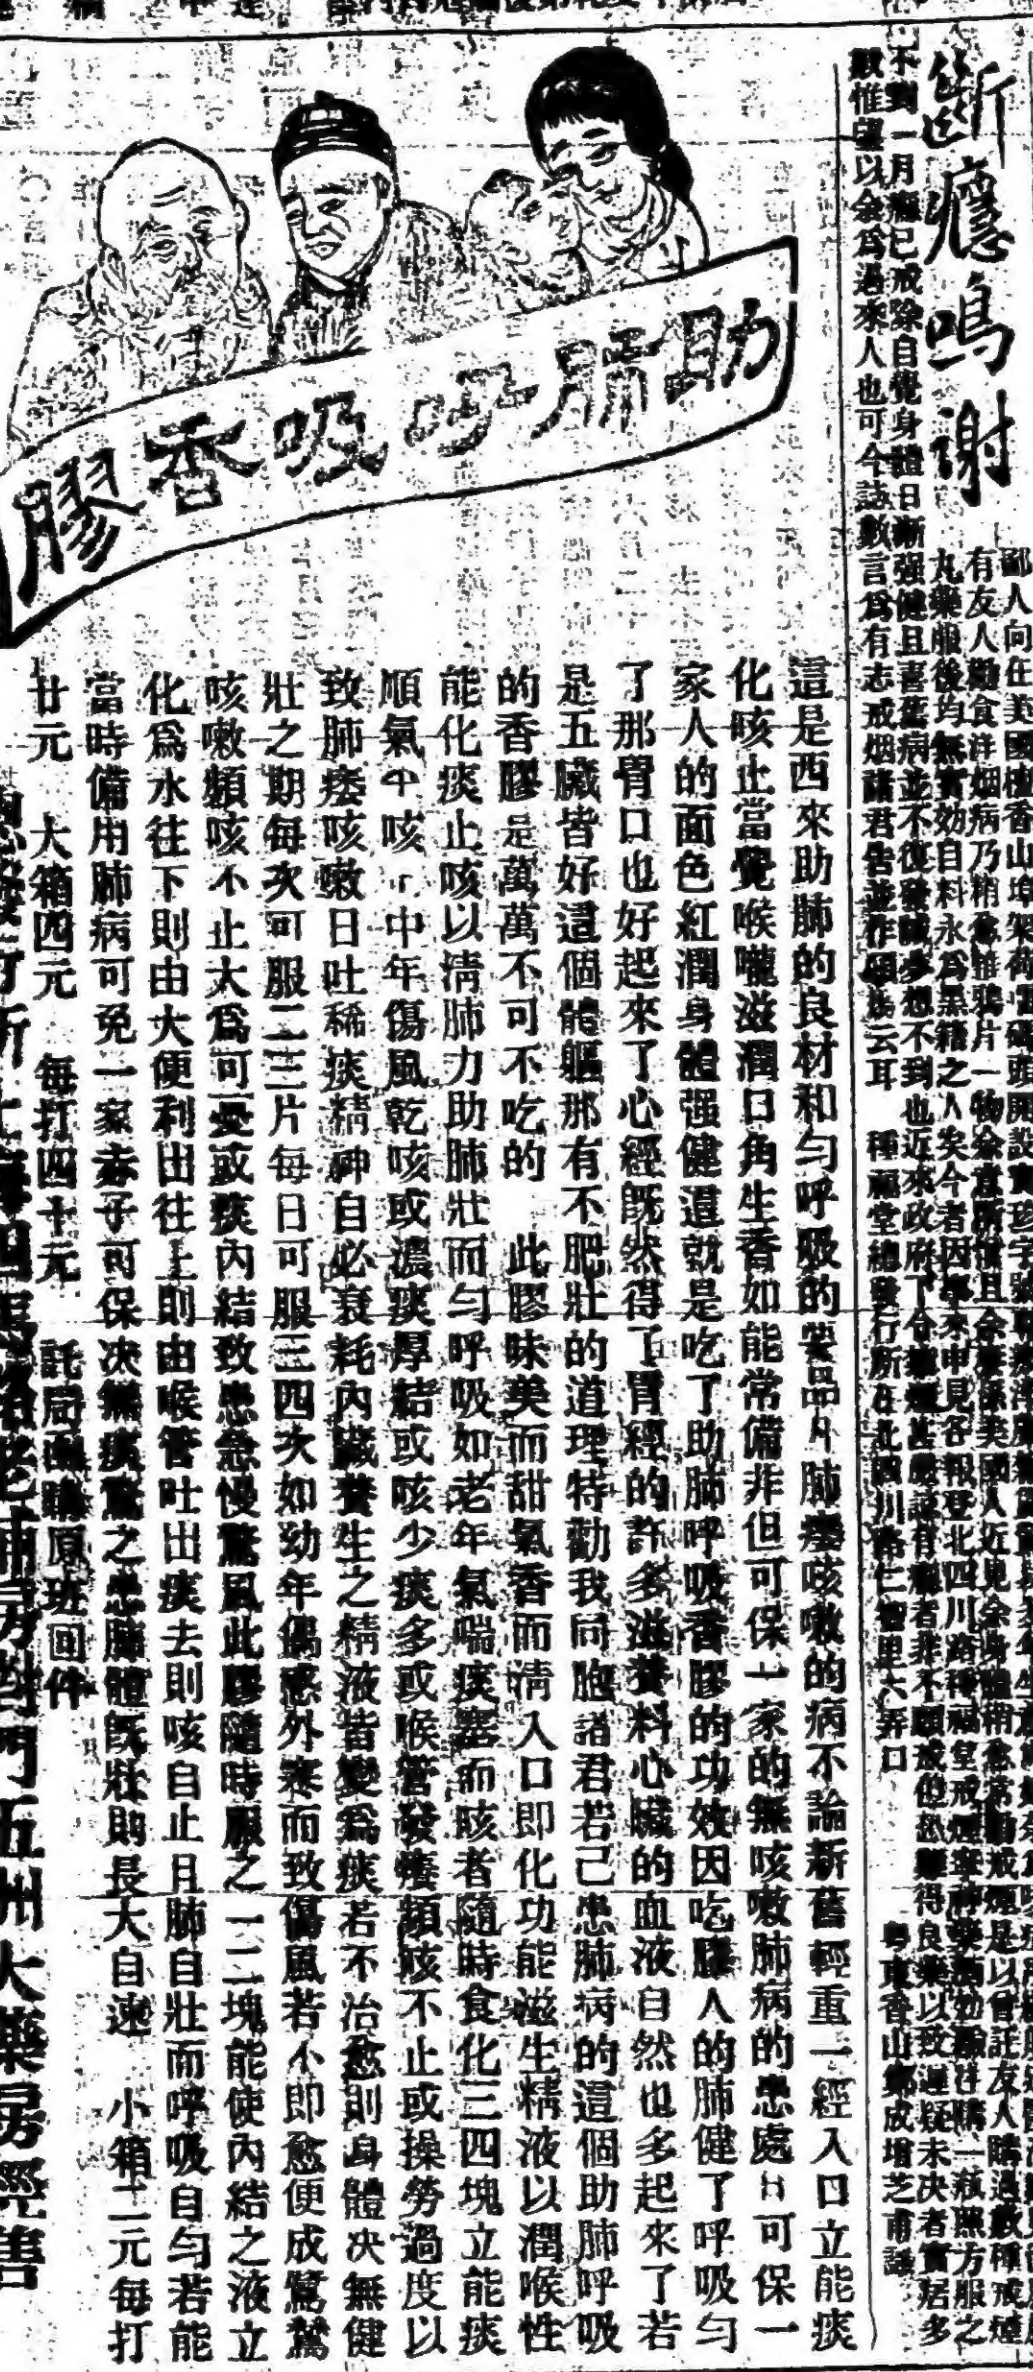 斷癮鳴謝
鄙人向在美國檀香山埠架荷雷碼頭開設
有友人勸食洋烟病乃稍愈雖鴉片一物余意所憎且余妻係美國人近見余身體稍愈常勸戒煙是以曾託友人購過數種戒煙
丸藥服後均無實効自料永爲黑籍之人矣今者因事來申見各報登北四川路種福堂戒煙 購一瓶照方服之
不到一月癮已戒除自覺身體日漸强健且喜舊病並不復發誠夢想不到也近來政府下令 煙甚嚴 有癮者非不願戒但恐難得良藥以致遲疑未决者實居多
數惟望以余爲過來人也可今誌數言爲有志戒烟諸君告並作 云耳 種福堂總發行所在北四川路仁智里六弄口 粤東香山鄭成增芝甫謹
助肺呼吸香膠
這是西來助肺的良材和勻呼吸的要品凡肺癆咳嗽的病不論新舊輕重一經入口立能痰
化咳止當覺喉嚨滋潤口角生香如能常備非但可保一家的無咳嗽肺病的患處且可保一
家人的面色紅潤身體强健這就是吃了助肺呼吸香膠的功效因吃膠人的肺健了呼吸勻
了那胃口也好起來了心經旣然得了胃經的許多滋養料心臟的血液自然也多起來了若
是五臟皆好這個體軀那有不肥壯的道理特勸我同胞諸君若己患肺病的這個助肺呼吸
的香膠是萬萬不可不吃的 此膠味美而甜氣香而清入口即化功能滋生精液以潤喉性
能化痰止咳以清肺力助肺壯而勻呼吸如老年氣喘痰塞而咳者隨時食化三四塊立能痰
順氣平咳 中年傷風乾咳或濃痰厚結或咳少痰多或喉管發癢頻咳不止或操勞過度以
致肺痿咳嗽日吐稀痰精神自必衰耗內臟養生之精液皆變爲痰若不治愈則身體决無健
壯之期每次可服二三片每日可服三四次如幼年偶感外寒而致傷風若不即愈便成驚駕
咳嗽頻咳不止大爲可憂或痰內結致患急慢驚風此膠隨時服之一二塊能使內結之液立
化爲水往下則由大便利出往上則由喉管吐出痰去則咳自止且肺自壯而呼吸自勻若能
當時備用肺病可免一家赤子可保决無痰驚之患肺體旣壯則長大自速 小箱二元每打
廿元 大箱四元 每打四十元 託局函購原班回件
上海四馬路老 對門五州大藥房經售